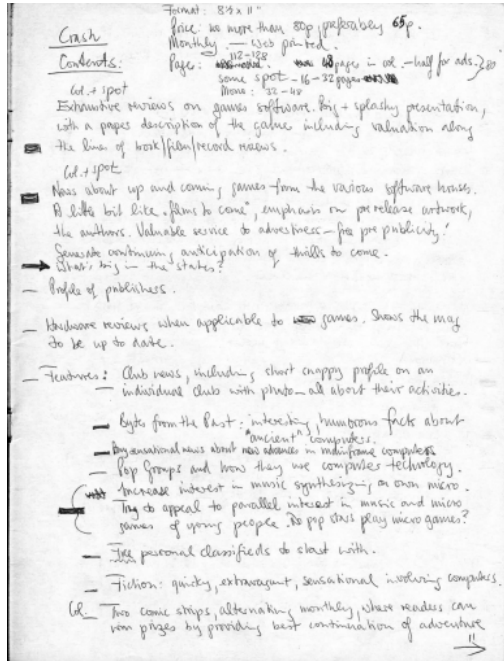 Format: 8½ x 11"
Crash
Price: no more than 80p, preferably 65p.
Monthly — web printed.
Contents:
Pages: 112-128 pages in col. — half for ads. } 80
some spot - 16 - 32 pages
Mono: 32 - 48
Col. + spot
Exhaustive reviews on games software. Big + splashy presentation,
with a paper description of the game including valuation along
the lines of book/film/record reviews.
Col. + spot
News about up and coming games from the various software houses.
A little bit like "films to come", emphasis on prerelease artwork,
the authors. Valuable service to advertisers – free pre publicity!
Generate continuing anticipation of thrills to come.
What's big in the states?
— Profile of publishers.
— Hardware reviews when applicable to games. Shows the mag
to be up to date.
— Features: Club news, including short snappy profile on an
individual club with photo – all about their activities.
— Bytes from the Past: interesting, humorous facts about
"ancient" computers.
— Any sensational news about new advances in mainframe computers
— Pop Groups and how they use computer technology.
Increase interest in music synthesizing on own micro.
Try to appeal to parallel interest in music and micro
games of young people. Do pop stars play micro games?
— Free personal classifieds to start with.
— Fiction: quicky, extravagant, sensational involving computers.
Col. — Two comic strips, alternating monthly, where readers can
win prizes by providing best continuation of adventure